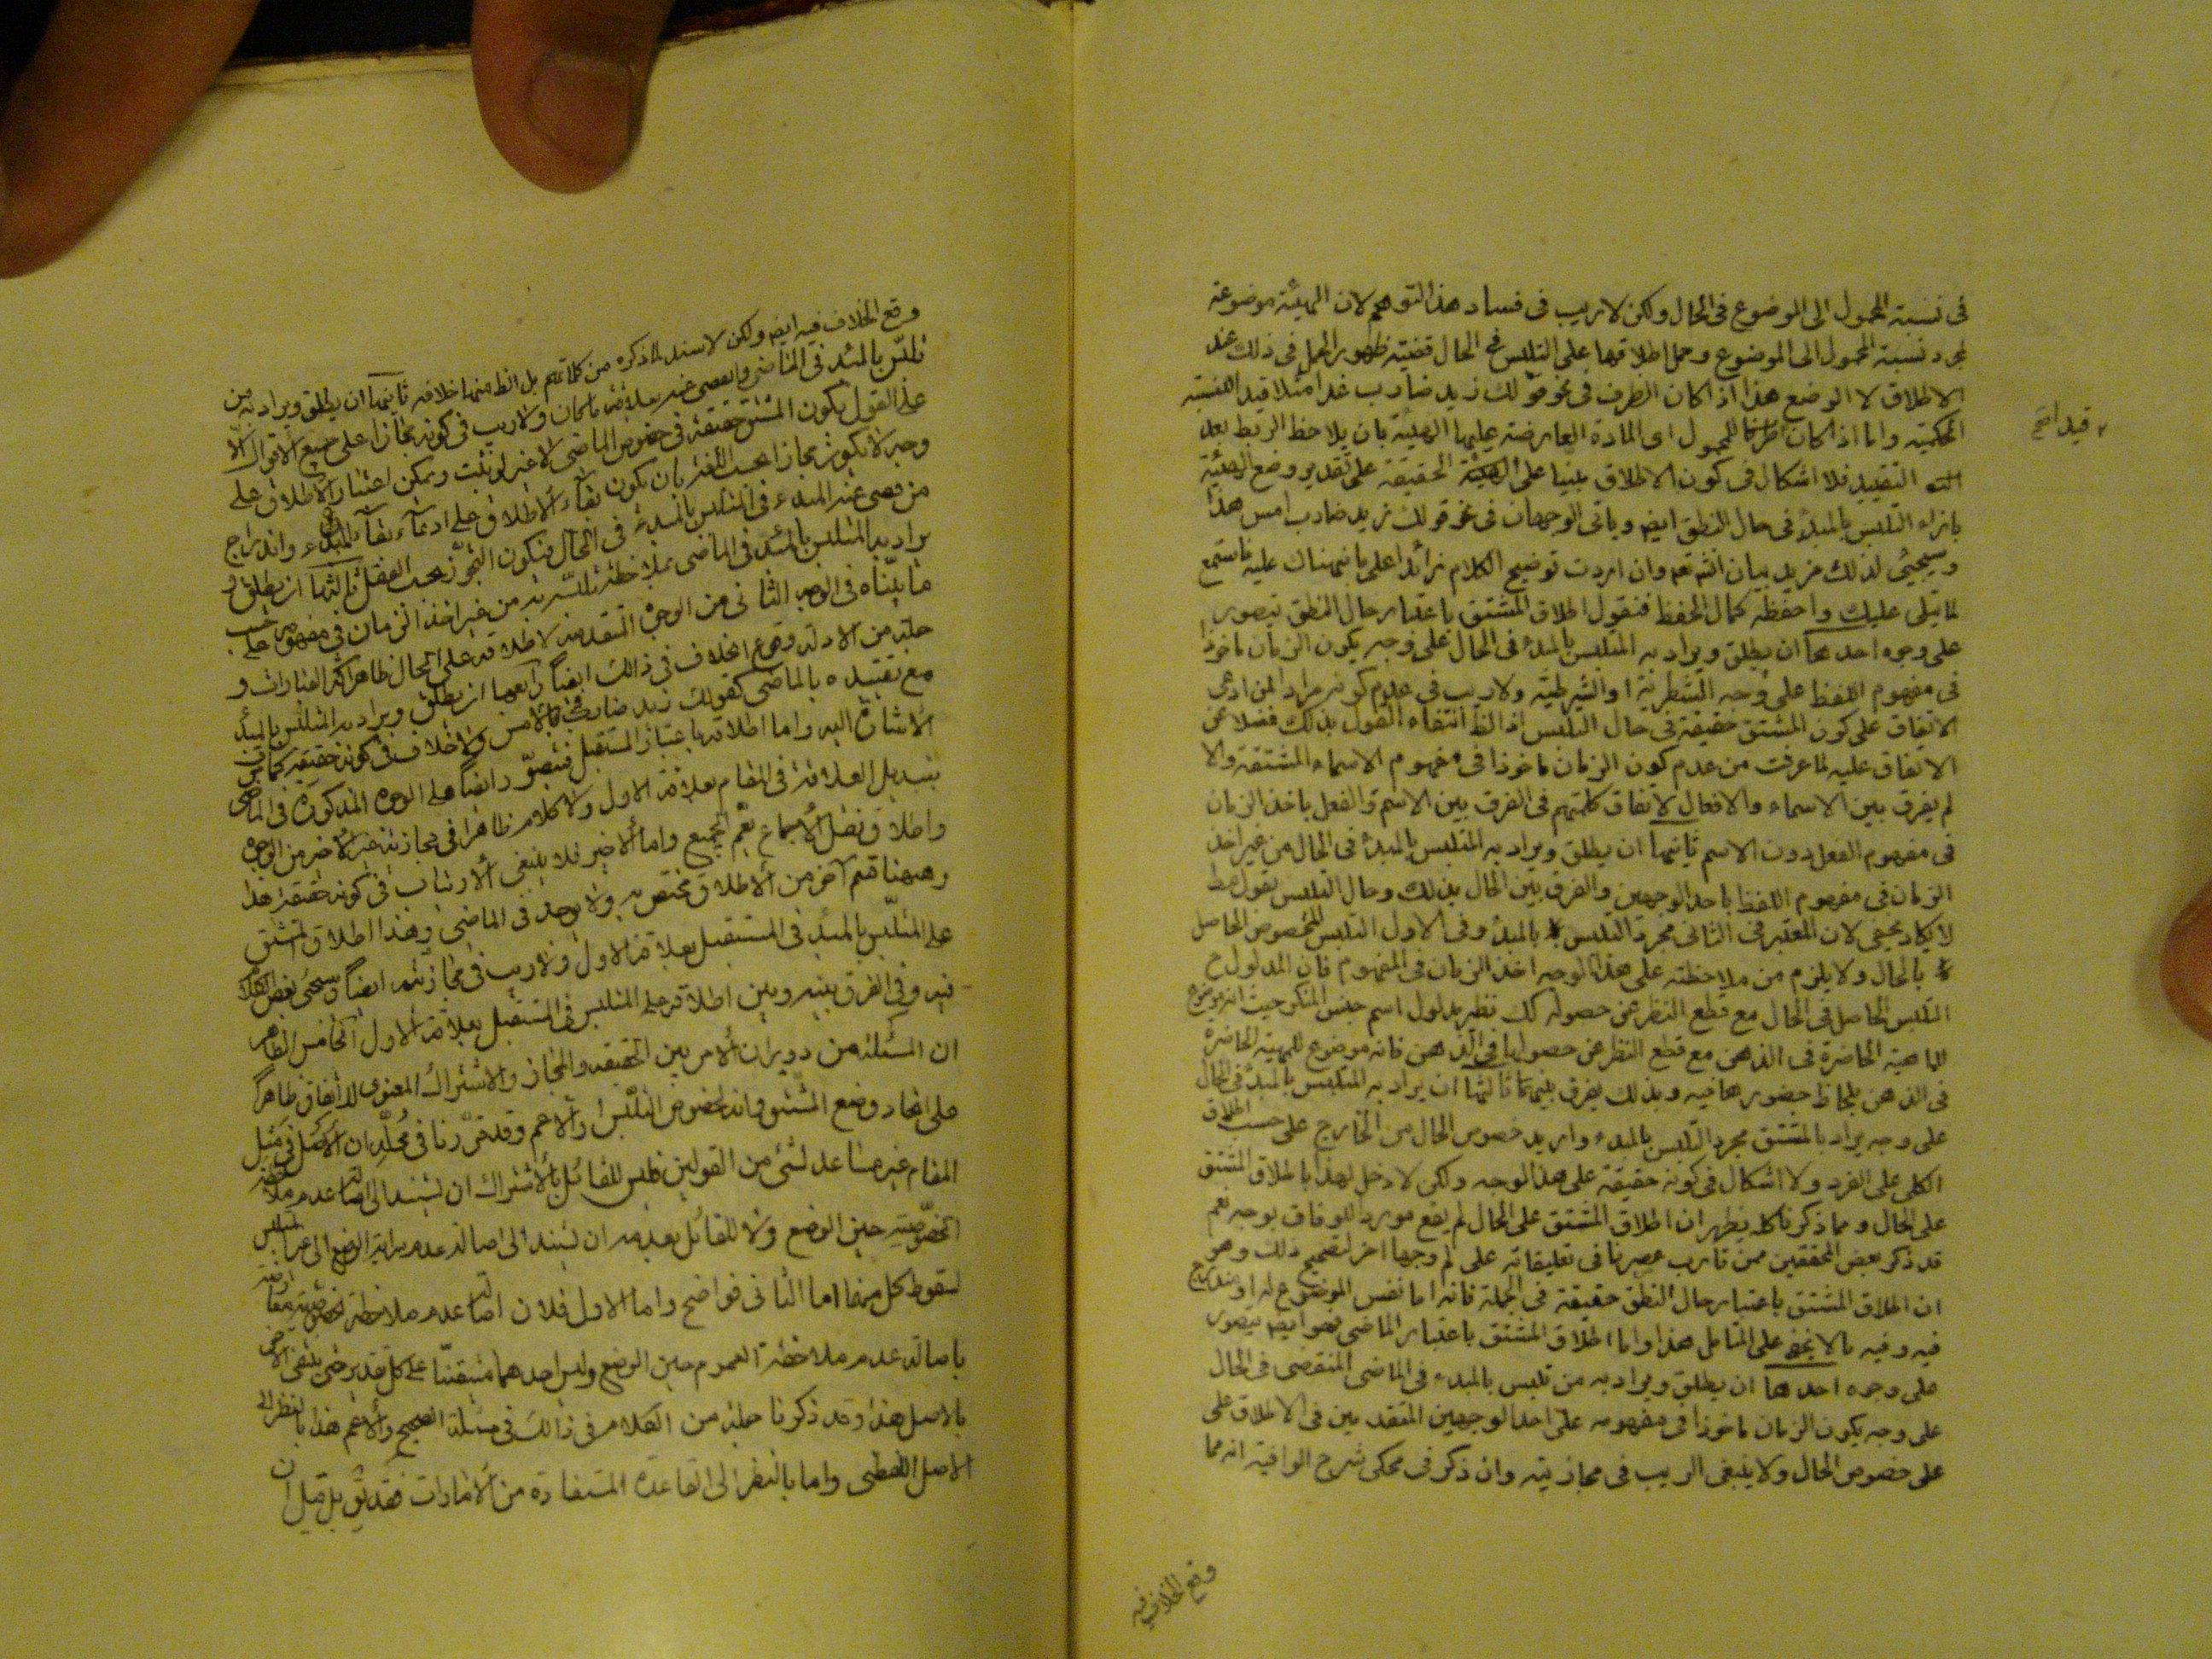 فى نسبته المحمول الى الموضوع فى الحال ولكن لا ريب فى فساد هذا التوهم لان الهيئة موضوعة
لمجرد نسبة المحمول الى الموضوع وحمل اطلاقها على التلبس فى الحال قضيته ظهور الحمل فى ذلك عند
الاطلاق لا الوضع هذا اذا كان الظرف فى نحو قولك زيد ضارب غدا مثلا قيدا للنسبة
الحكمية واما اذا كان للمحمول اى المادة العارضة عليها الهيئة بان يلاحظ الربط بعد
التقييد فلا اشكال فى كون الاطلاق مبنيا على الحقيقة على تقدير وضع الهيئة
بازاء التلبس بالمبدء فى حال النطق ايضا وياتى الوجهان فى نحو قولك زيد ضارب امس هذا
وسيجيئ لذلك مزيد بيان انشاء الله تعم وان اردت توضيح الكلام زائدا على ما نبهناك عليه فاستمع
لما يتلى عليك واحفظه كمال الحفظ فنقول اطلاق المشتق باعتبار حال النطق يتصور
على وجوه احدها ان يطلق ويراد به المتلبس بالمبدء فى الحال على وجه يكون الزمان ماخوذا
فى مفهوم اللفظ على وجه الشطرية او الشرطية ولا ريب فى عدم كونه مرادا لمن ادعى
الاتفاق على كون المشتق حقيقة فى حال التلبس اذ الظ انتفاء القول بذلك فضلا عن
الاتفاق عليه لما عرفت من عدم كون الزمان ماخوذا فى مفهوم الاسماء المشتقة والا
لم يفرق بين الاسماء والافعال لاتفاق كلمتهم فى الفرق بين الاسم والفعل باخذ الزمان
فى مفهوم الفعل دون الاسم ثانيها ان يطلق ويراد به المتلبس بالمبدء فى الحال من غير اخذ
الزمان فى مفهوم اللفظ باحد الوجهين والفرق بين الحال بذلك وحال التلبس بقول مط
لا يكاد يخفى لان المعتبر فى الثانى مجرد التلبس بالمبدء وفى الاول التلبس المخصوص الحاصل
بالحال ولا يلزم من ملاحظته على هذا الوجه اخذ الزمان فى المفهوم فان المدلول ح
التلبس الحاصل فى الحال مع قطع النظر عن حصوله كك نظير مدلول اسم جنس المنكر حيث انه موضوع
للماهية الحاضرة فى الذهن مع قطع النظر عن حصولها فى الذهن فانه موضوع للمهية الحاضرة
فى الذهن بلحاظ حضورها فيه وبذلك يفرق بينهما ثالثها ان يراد به المتلبس بالمبدء فى الحال
على وجه يراد بالمشتق مجرد التلبس بالمبدء واريد خصوص الحال من الخارج على حسب اطلاق
الكلى على الفرد ولا اشكال فى كونه حقيقة على هذا الوجه ولكن لا دخل لهذا باطلاق المشتق
على الحال ومما ذكرنا كله يظهر ان اطلاق المشتق على الحال لم يقع موردا للوفاق بوجه نعم
قد ذكر بعض المحققين ممن قارب عصرنا فى تعليقاته على لم وجها اخر لتصحيح ذلك وهو
ان اطلاق المشتق باعتبار حال النطق حقيقة فى الجملة فانه اما نفس الموضوع له او مندرج
فيه وفيه ما لا يخفى على المتامل هذا واما اطلاق المشتق باعتبار الماضى فهو ايضا يتصور
على وجوه احدها ان يطلق ويراد به من تلبس بالمبدء فى الماضى المنقضى فى الحال
على وجه يكون الزمان ماخوذا فى مفهومه على احد الوجهين المتقدمين فى الاطلاق على
على خصوص الحال ولا ينبغى الريب فى مجازيته وان ذكر فى محكى شرح الوافية انه مما
وقع الخلاف فيه
وقع الخلاف فيه ايضا ولكن لا سند لما ذكره من كلماتهم بل الظ منها خلافه ثانيها ان يطلق ويراد به من
تلبس بالمبدء فى الماضى وانقضى عنه بعلاقة ما كان ولا ريب فى كونه مجازا على جميع الاقوال الا
على القول بكون المشتق حقيقة فى خصوص الماضى لا غير لو ثبت ويمكن اعتبار الاطلاق على
وجه لا يكون مجازا بحسب اللغة بان يكون بناء الاطلاق على ادعاء بقاء المبدء واندراج
من قضى عنه المبدء فى المتلبس بالمبدء فى الحال فيكون التجوز بحسب العقل ثالثها ان يطلق و
يراد به المتلبس بالمبدء فى الماضى بملاحظة تلبسه به من غير اخذ الزمان فى مفهومه على حسب
ما بيناه فى الوجه الثانى من الوجوه المتقدمة لاطلاقه على الحال ظاهر اكثر العبارات و
جملة من الادلة وقوع الخلاف فى ذلك ايضا رابعها ان يطلق ويراد به المتلبس بالمبدء
مع تقييده بالماضى كقولك زيد ضارب بالامس ولا خلاف فى كونه حقيقة كما فى
الاشارة اليه واما اطلاقه باعتبار المستقبل فيتصور ايضا على الوجوه المذكورة فى الماضى
بتبديل العلاقة فى المقام بعلاقة الاول ولا كلام ظاهرا فى مجازيته غير الاخير من الوجوه
واطلاق نقل الاجماع يعم الجميع واما الاخير فلا ينبغى الارتياب فى كونه حقيقة هذا
وههنا قسم آخر من الاطلاق مختص به ولا يوجد فى الماضى وهذا اطلاق المشتق
على المتلبس بالمبدء فى المستقبل بعلاقة الاول ولا ريب فى مجازيته ايضا وسيجئ بعض الكلام
فيه وفى الفرق بينه وبين اطلاقه على المتلبس فى المستقبل بعلاقة الاول الخامس الظاهر
ان المسئلة من دوران الامر بين الحقيقة والمجاز والاشتراك المعنوى للاتفاق ظاهرا
على اتحاد وضع المشتق وانه لخصوص التلبس او الاعم وقد قررنا فى محله ان الاصل فى مثل
المقام غير مساعد لشئ من القولين فليس للقائل بالاشتراك ان يستند الى اصالة عدم ملاحظة
الخصوصية حين الوضع ولا للقائل بعدمه ان يستند الى اصالة عدم سراية الوضع الى غير المتلبس
لسقوط كل منهما اما الثانى فواضح واما الاول فلان اصالة عدم ملاحظة الخصوصية معارضة
باصالة عدم ملاحظة العموم حين الوضع وليس احدهما متيقنا على كل تقدير حتى ينفى الاخر
بالاصل هذا وقد ذكرنا جملة من الكلام فى ذلك فى مسئلة الصحيح والاعم هذا بالنظر الى
الاصل اللفظى واما بالنظر الى القاعدة المستفادة من الامارات فقد يق بل قيل ان